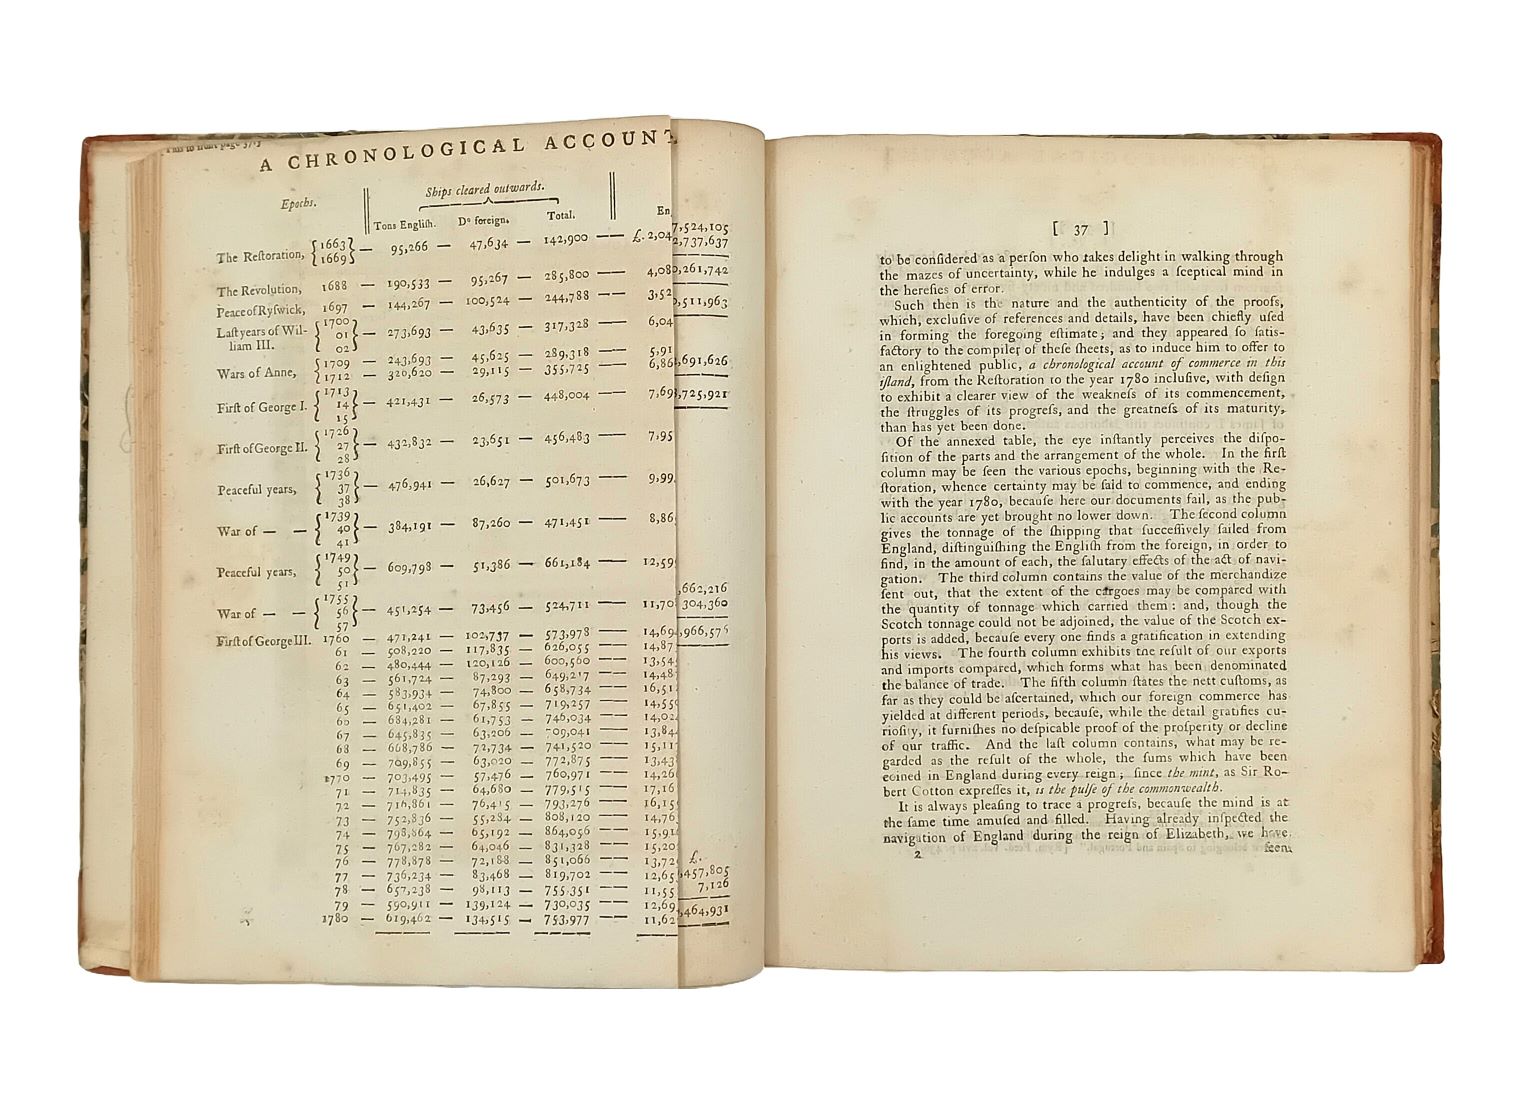 This to front page 37.]
A CHRONOLOGICAL ACCOUNT
Epochs. Ships cleared outwards.
Tons Engliſh. Dº foreign. Total. En
The Reſtoration, { 1663 1669 } — 95,266 — 47,634 — 142,900 —— £. 2,04
The Revolution, 1688 — 190,533 — 95,267 — 285,800 —— 4,08
Peace of Ryſwick, 1697 — 144,267 — 100,524 — 244,788 —— 3,52
Laſt years of Wil-
liam III. { 1700 01 02 } — 273,693 — 43,635 — 317,328 —— 6,04
Wars of Anne, { 1709 — 243,693 — 45,625 — 289,318 —— 5,91
1712 — 320,620 — 29,115 — 355,725 —— 6,86
Firſt of George I. { 1713 14 15 } — 421,431 — 26,573 — 448,004 —— 7,69
Firſt of George II. { 1726 27 28 } — 432,832 — 23,651 — 456,483 —— 7,95
Peaceful years, { 1736 37 38 } — 476,941 — 26,627 — 501,673 —— 9,99
War of — — { 1739 40 41 } — 384,191 — 87,260 — 471,451 —— 8,86
Peaceful years, { 1749 50 51 } — 609,798 — 51,386 — 661,184 —— 12,59
War of — — { 1755 56 57 } — 451,254 — 73,456 — 524,711 —— 11,70
Firſt of George III. 1760 — 471,241 — 102,737 — 573,978 —— 14,69
61 — 508,220 — 117,835 — 626,055 —— 14,87
62 — 480,444 — 120,126 — 600,560 —— 13,54
63 — 561,724 — 87,293 — 649,217 —— 14,48
64 — 583,934 — 74,800 — 658,734 —— 16,51
65 — 651,402 — 67,855 — 719,257 —— 14,55
66 — 684,281 — 61,753 — 746,034 —— 14,02
67 — 645,835 — 63,206 — 709,041 —— 13,84
68 — 668,786 — 72,734 — 741,520 —— 15,11
69 — 709,855 — 63,020 — 772,875 —— 13,43
1770 — 703,495 — 57,476 — 760,971 —— 14,26
71 — 714,835 — 64,680 — 779,515 —— 17,16
72 — 716,861 — 76,415 — 793,276 —— 16,15
73 — 752,836 — 55,284 — 808,120 —— 14,76
74 — 798,864 — 65,192 — 864,056 —— 15,91
75 — 767,282 — 64,046 — 831,328 —— 15,20
76 — 778,878 — 72,188 — 851,066 —— 13,72
77 — 736,234 — 83,468 — 819,702 —— 12,65
78 — 657,238 — 98,113 — 755,351 —— 11,55
79 — 590,911 — 139,124 — 730,035 —— 12,69
1780 — 619,462 — 134,515 — 753,977 —— 11,62
7,524,105
2,737,637
0,261,742
0,511,963
,691,626
,725,921
,662,216
304,360
,966,576
£.
,457,805
7,126
,464,931
[ 37 ]
to be conſidered as a perſon who takes delight in walking through
the mazes of uncertainty, while he indulges a ſceptical mind in
the hereſies of error.
Such then is the nature and the authenticity of the proofs,
which, excluſive of references and details, have been chiefly uſed
in forming the foregoing eſtimate; and they appeared ſo ſatis-
factory to the compiler of theſe ſheets, as to induce him to offer to
an enlightened public, a chronological account of commerce in this
iſland, from the Reſtoration to the year 1780 incluſive, with deſign
to exhibit a clearer view of the weakneſs of its commencement,
the ſtruggles of its progreſs, and the greatneſs of its maturity,
than has yet been done.
Of the annexed table, the eye inſtantly perceives the diſpo-
ſition of the parts and the arrangement of the whole. In the firſt
column may be ſeen the various epochs, beginning with the Re-
ſtoration, whence certainty may be ſaid to commence, and ending
with the year 1780, becauſe here our documents fail, as the pub-
lic accounts are yet brought no lower down. The ſecond column
gives the tonnage of the ſhipping that ſucceſſively ſailed from
England, diſtinguiſhing the Engliſh from the foreign, in order to
find, in the amount of each, the ſalutary effects of the act of navi-
gation. The third column contains the value of the merchandize
ſent out, that the extent of the cargoes may be compared with
the quantity of tonnage which carried them: and, though the
Scotch tonnage could not be adjoined, the value of the Scotch ex-
ports is added, becauſe every one finds a gratification in extending
his views. The fourth column exhibits the reſult of our exports
and imports compared, which forms what has been denominated
the balance of trade. The fifth column ſtates the nett cuſtoms, as
far as they could be aſcertained, which our foreign commerce has
yielded at different periods, becauſe, while the detail gratifies cu-
rioſity, it furniſhes no deſpicable proof of the proſperity or decline
of our traffic. And the laſt column contains, what may be re-
garded as the reſult of the whole, the ſums which have been
coined in England during every reign; ſince the mint, as Sir Ro-
bert Cotton expreſſes it, is the pulſe of the commonwealth.
It is always pleaſing to trace a progreſs, becauſe the mind is at
the ſame time amuſed and filled. Having already inſpected the
navigation of England during the reign of Elizabeth, we have
2 ſeen